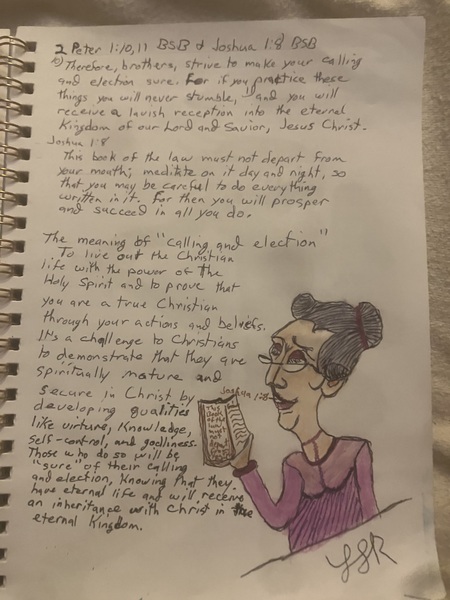 2 Peter 1:10,11 BSB & Joshua 1:8 BSB
10) Therefore, brothers, strive to make your calling
and election sure. For if you practice these
things you will never stumble, 11 and you will
receive a lavish reception into the eternal
Kingdom of our Lord and Savior, Jesus Christ.
Joshua 1:8
This book of the law must not depart from
your mouth; meditate on it day and night, so
that you may be careful to do everything
written in it. For then you will prosper
and succeed in all you do.
The meaning of "calling and election"
To live out the Christian
life with the power of the
Holy Spirit and to prove that
you are a true Christian
through your actions and beliefs.
It's a challenge to Christians
to demonstrate that they are
spiritually mature and
secure in Christ by
developing qualities
like virture, Knowledge,
self-control, and godliness.
Those who do so will be
"sure" of their calling
and election, Knowing that they
have eternal life and will receive
an inheritance with Christ in the
eternal Kingdom.
Joshua 1:8
This
Book
of the
law
must
not